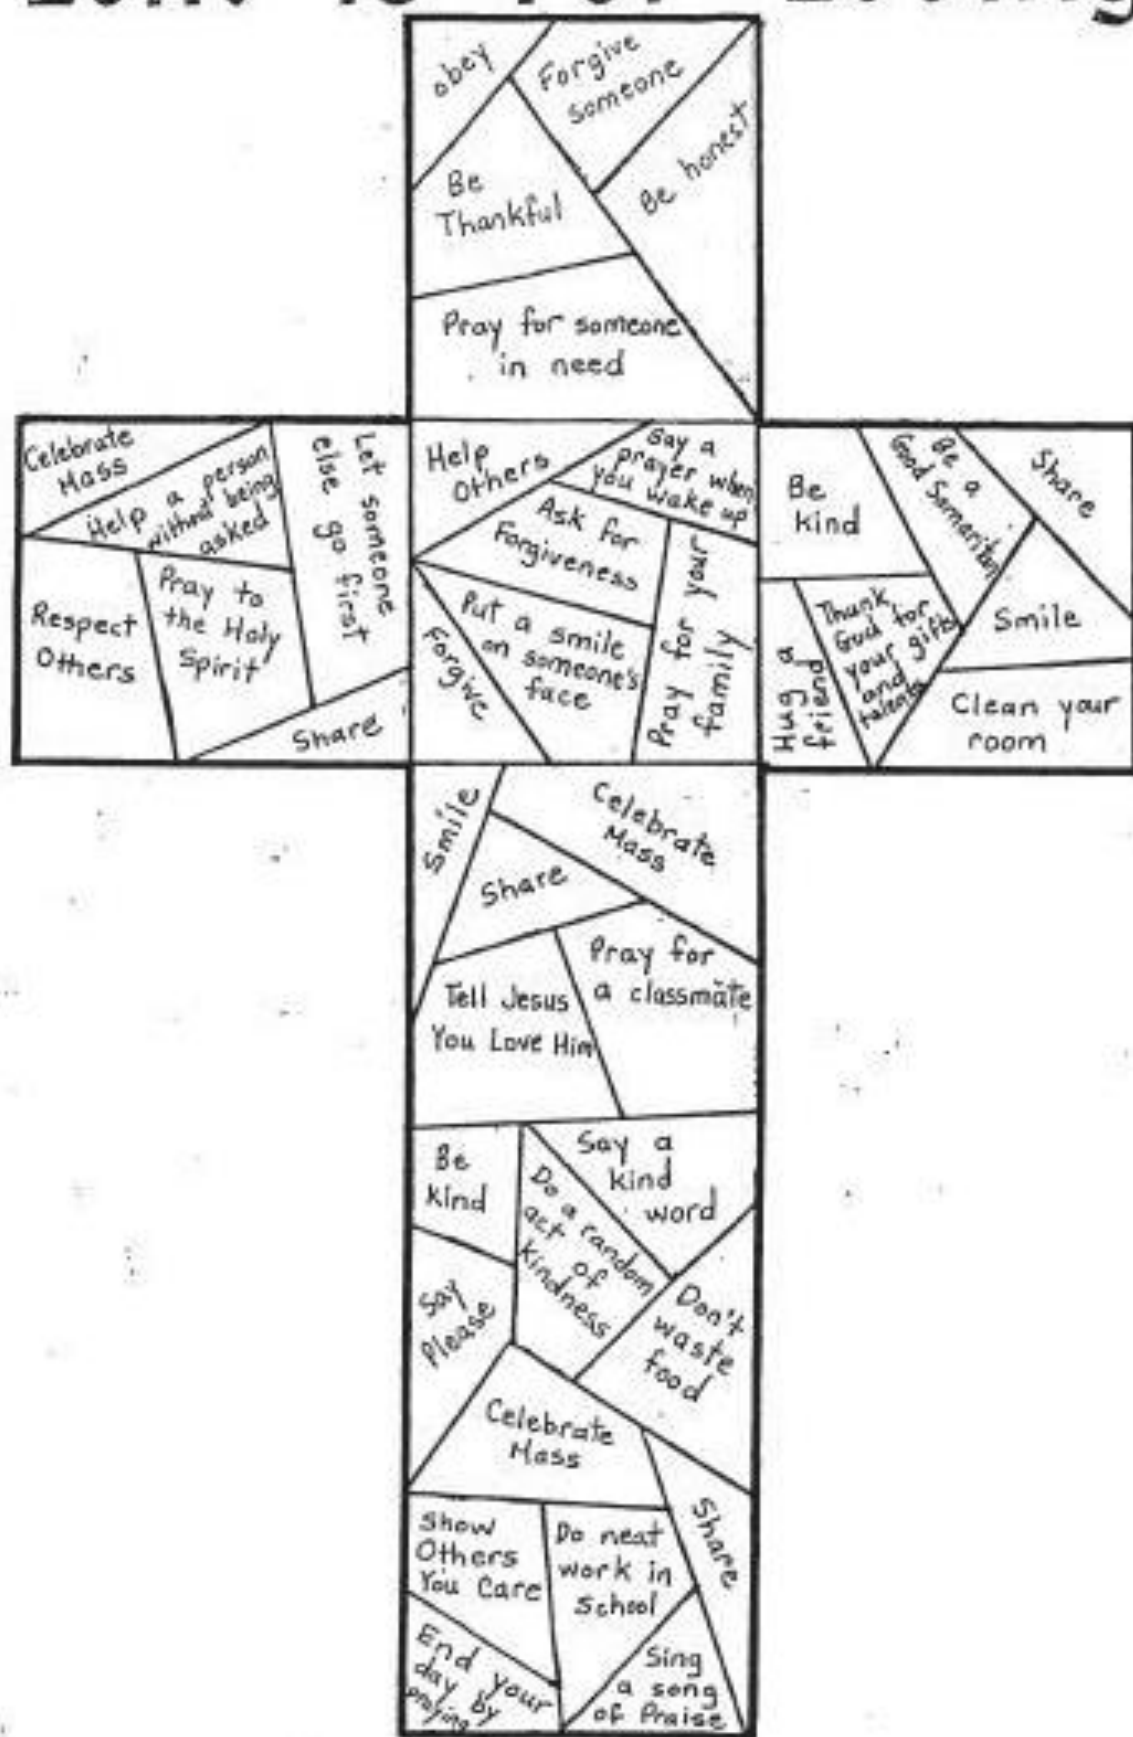 Lent is For Loving
obey
Forgive
someone
Be
Thankful
Be honest
Pray for someone
in need
Celebrate
Mass
Help a person
without being
asked
Let someone
else go first
Respect
Others
Pray to
the Holy
Spirit
Share
Help
Others
Say a
prayer when
you wake up
Ask for
Forgiveness
Put a smile
on someone's
face
Forgive
Pray for your
family
Be
kind
Be a
Good Samaritan
Share
Hug a
friend
Thank
God for
your gifts
and
talents
Smile
Clean your
room
Smile
Celebrate
Mass
Share
Tell Jesus
You Love Him
Pray for
a classmate
Be
kind
Do a random
act of
kindness
Say a
kind
word
Say
Please
Don't
waste
food
Celebrate
Mass
Share
Show
Others
You Care
Do neat
work in
School
End your
day by
praying
Sing
a song
of Praise